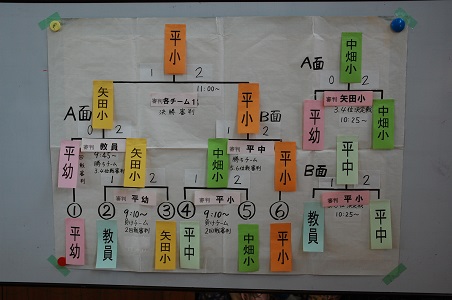 平小
1 2
11:00~
審判 各チーム1
決勝審判
A面
矢田小
0 2
平小
B面
1 2
審判 教員
9:45~
勝ちチーム
3.4位戦審判
平幼
矢田小
1 2
審判 平幼
9:10~
負けチーム
2回戦審判
審判 平中
勝ちチーム
5.6位戦審判
中畑小
平小
1 2
審判 平小
9:10~
負けチーム
2回戦審判
① ② ③ ④ ⑤ ⑥
平幼
教員
矢田小
平中
中畑小
平小
中畑小
A面
0 2
審判 矢田小
3.4位決定戦
10:25~
平幼
中畑小
平中
B面
1 2
審判 平小
10:25~
教員
平中